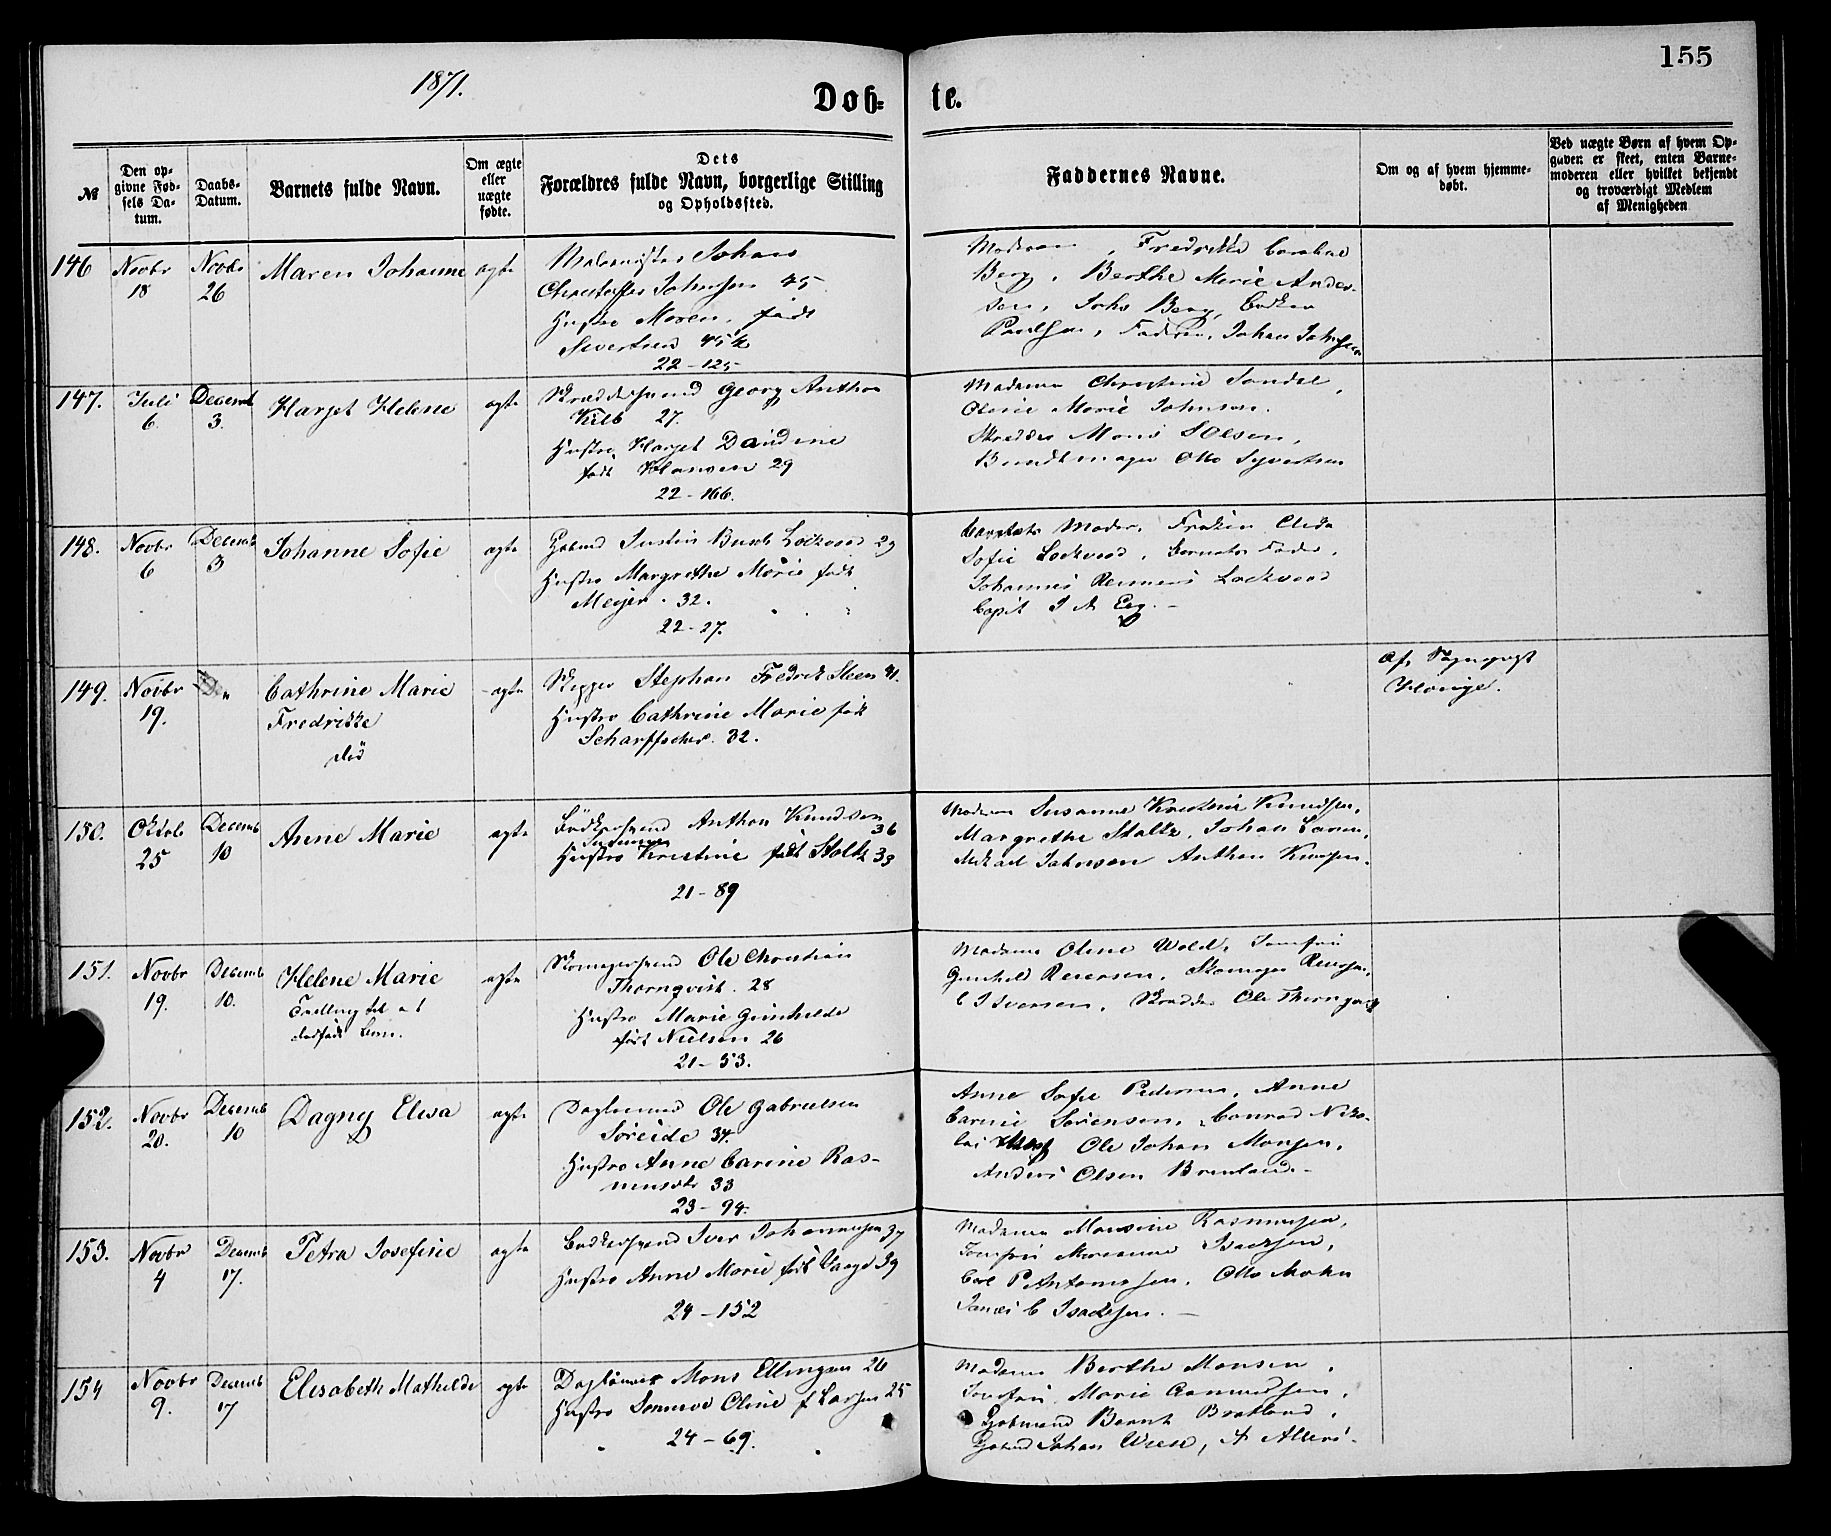 155
1871.
Døb-
te.
№
Den op-
givne Fød-
sels Da-
tum.
Daabs-
Datum.
Barnets fulde Navn.
Om ægte
eller
uægte
fødte.
Dets
Forældres fulde Navn, borgerlige Stilling
og Opholdssted.
Faddernes Navne.
Om og af hvem hjemme-
døbt.
Ved uægte Børn af hvem Op-
gaven er skeet, enten Barne-
moderen eller hvilket bekjendt
og troværdigt Medlem
af Menigheden
146
Novbr
18
Novbr
26
Maren Johanne
ægte
Johan
Christoffer Johnsen 45
Hustro Maren, født
Sivertsen
22-125
Fredrikke
Berg, Berthe Marie Ander-
sen, Johs Berg,
Paulsen, Faderen, Johan Johnsen
147.
Juli
6
Decemb
3.
Harjet Helene
ægte
Georg Anthon
Kilb 27.
Hustro Harjet Davidine
født Hansen 29
22-166.
Madame Christine
Oline Marie Johnsen.
Skrædder Mons Olsen,
Bundtmager Otto Syvertsen
148.
Novbr
6
Decemb
3
Johanne Sofie
ægte
Justin Lockvood 29
Hustro Margrethe Marie født
Meyer. 32.
22-27.
Barnets Moder, Frøken
Sofie Lockvood, Barnets Fader,
Johannes Lockvood
Capit J A
149.
Novbr
19.
Cathrine Marie
Fredrikke
død
ægte
Skipper Stephan Fredrik Steen 41.
Hustro Cathrine Marie født
32.
Af
150.
Oktob
25
Decemb
10
Anne Marie
ægte
Bødkersvend Anthon Knudsen
36
Hustro Kristine født Stoltz 39
21-89
Madame Susanne Kristine Knudsen,
Margrethe Stoltz, Johan
Mikael Johnsen Anthon
151.
Novbr
19.
Decemb
10.
Helene Marie
Tvilling til et
dødfødt Barn.
ægte
Skomagersvend Ole Christian
Thornqvist. 28
Hustro Marie Gunhilde
født Nielsen 26
21-53.
Madame Oline Wold, Jomfru
Gunhild Reiersen, Skomager
C Iversen, Skrædder Ole Thornqvist
152.
Novbr
20.
Decemb
10
Dagny Elisa
ægte
Ole Gabrielsen
Søreide 34.
Hustro Anne Carine Ras-
33
23-94.
Anne Sofie Pedersen, Anne
Carine Sørensen, Conrad Niko-
lai Ole Johan Monsen,
Anders Olsen
153.
Novbr
4
Decemb
17.
Petra Josefine
ægte
Iver Johannesen 37
Hustro Anne Marie født Vaage 39
24-152
Madame Monsine Rasmussen,
Jomfru Marianne Isachsen,
Carl P Antonissen, Otto
C Isachsen.
154
Novbr
9.
Decemb
17
Elisabeth Mathilde
ægte
Daglønner Mons Ellingsen 26
Hustro Sønneve Oline f Larsen 25
24-69.
Madame Berthe Monsen,
Jomfru Marie Asmundsen,
Bernt
Johan